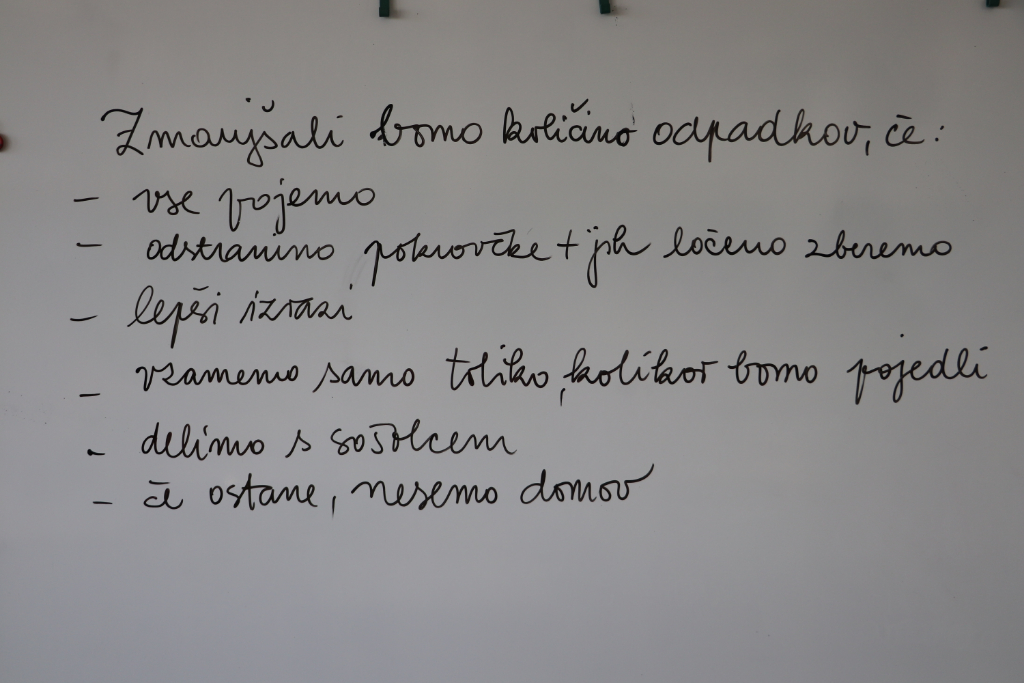 Zmanjšali bomo količino odpadkov, če:
- vse pojemo
- odstranimo pokrovčke + jih ločeno zberemo
- lepši izrazi
- vzamemo samo toliko, kolikor bomo pojedli
- delimo s sošolcem
- če ostane, nesemo domov